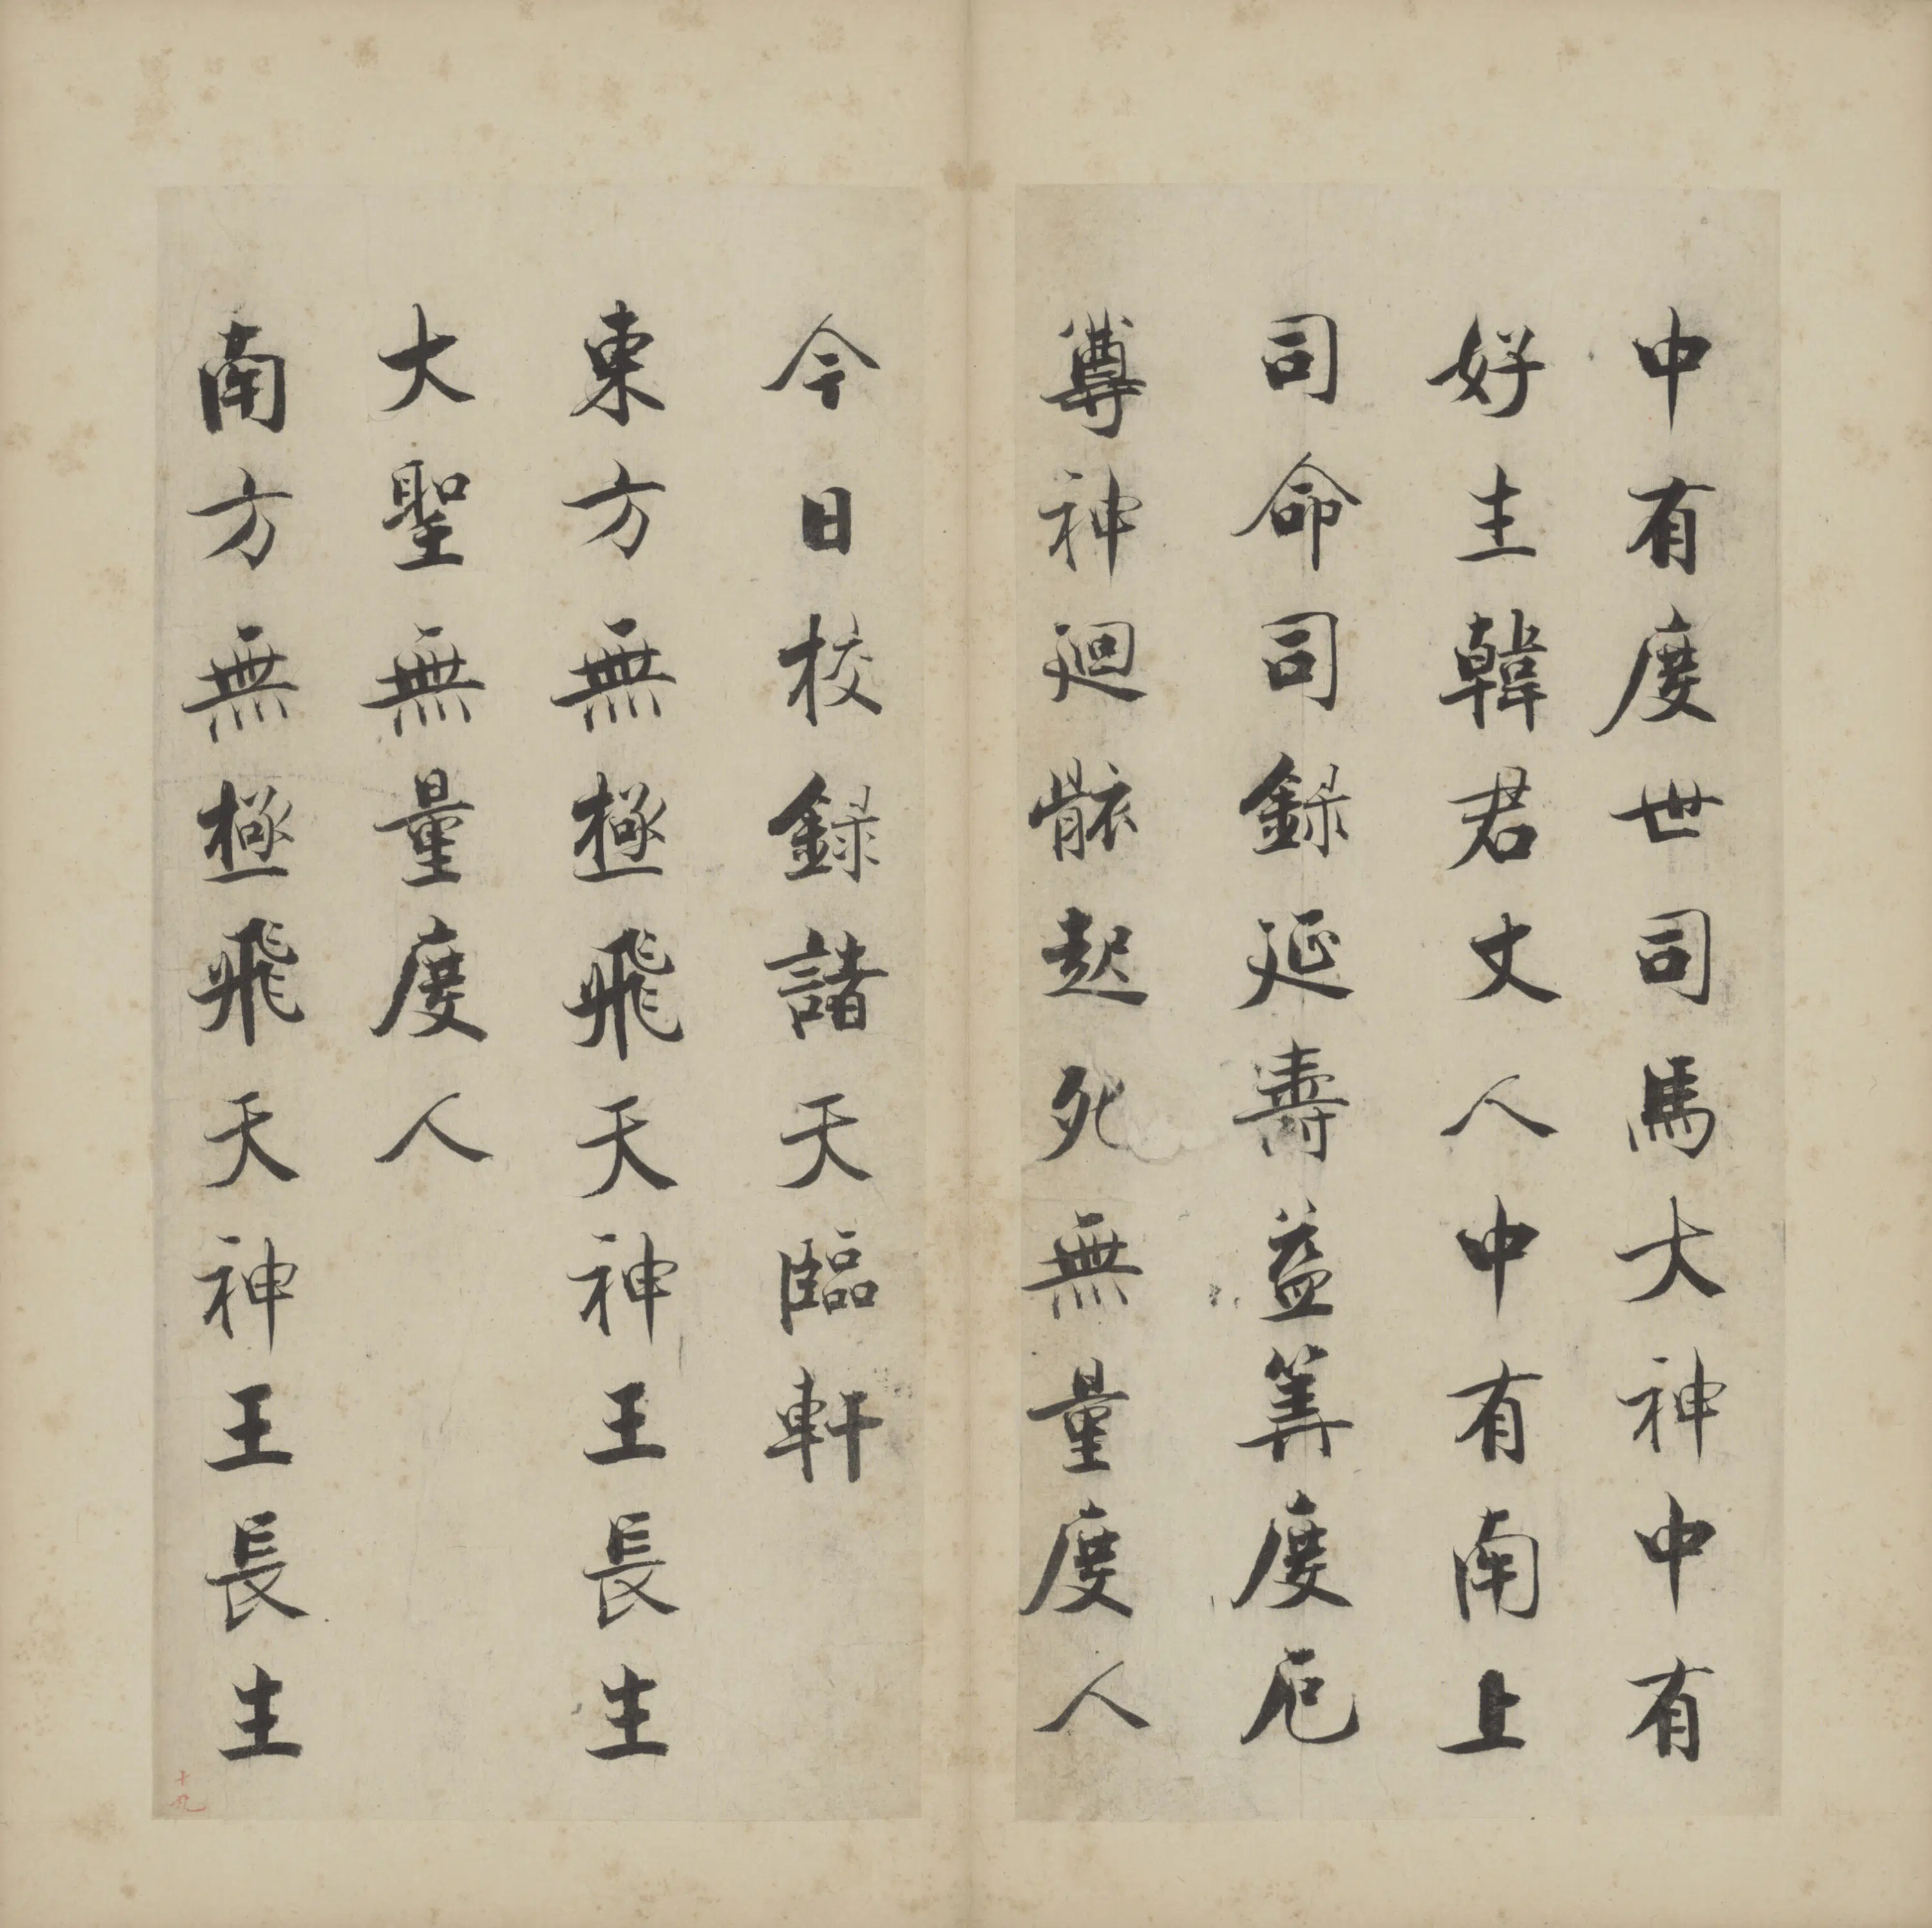 中有度世司馬大神中有
好生韓君丈人中有南上
司命司録延壽益筭度厄
尊神廻骸起死無量度人
今日校録諸天臨軒
東方無極飛天神王長生
大聖無量度人
南方無極飛天神王長生
十九